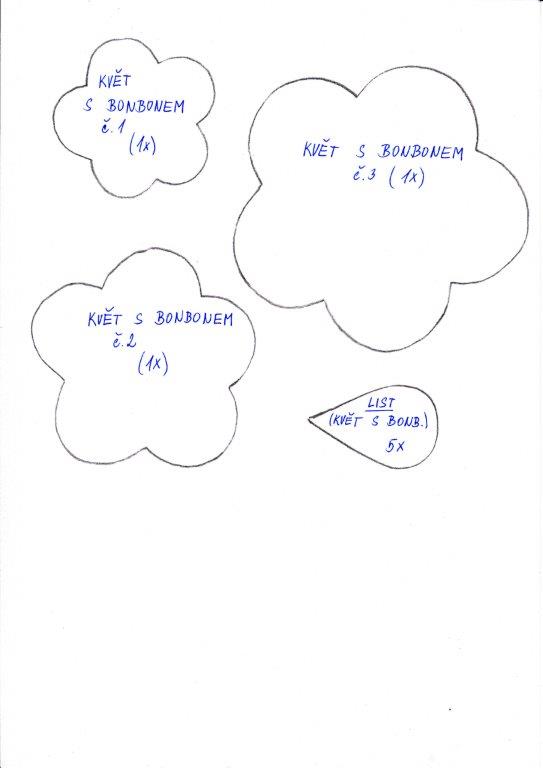 KVĚT
S BONBONEM
č.1
(1x)
KVĚT S BONBONEM
č.3 (1x)
KVĚT S BONBONEM
č.2
(1x)
LIST
(KVĚT S BONB.)
5x